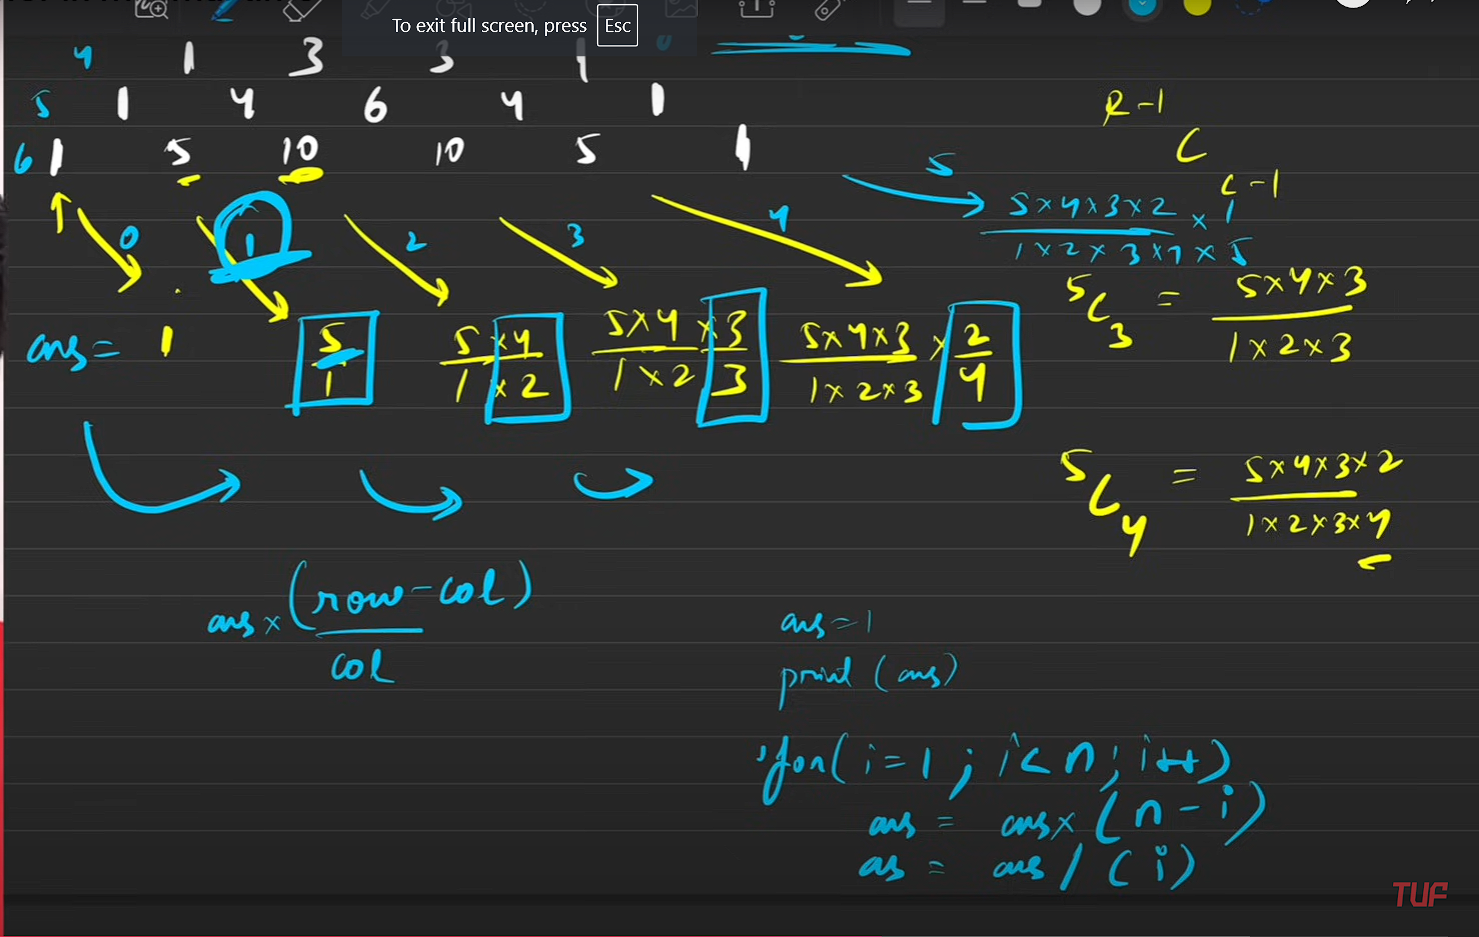 To exit full screen, press Esc
4 1 3 3 1
5 1 4 6 4 1
6 1 5 10 10 5 1
R-1
C
C-1
0 1 2 3 4 5
5×4×3×2 × 1
1×2×3×4×5
ans = 1
5/1
5×4
1×2
5×4×3
1×2 3
5×4×3 × 2
1×2×3 4
5C3 = 5×4×3
1×2×3
5C4 = 5×4×3×2
1×2×3×4
ans × (row-col)
col
ans=1
print (ans)
for(i=1; i<n; i++)
ans = ans×(n-i)
as = ans/(i)
TUF